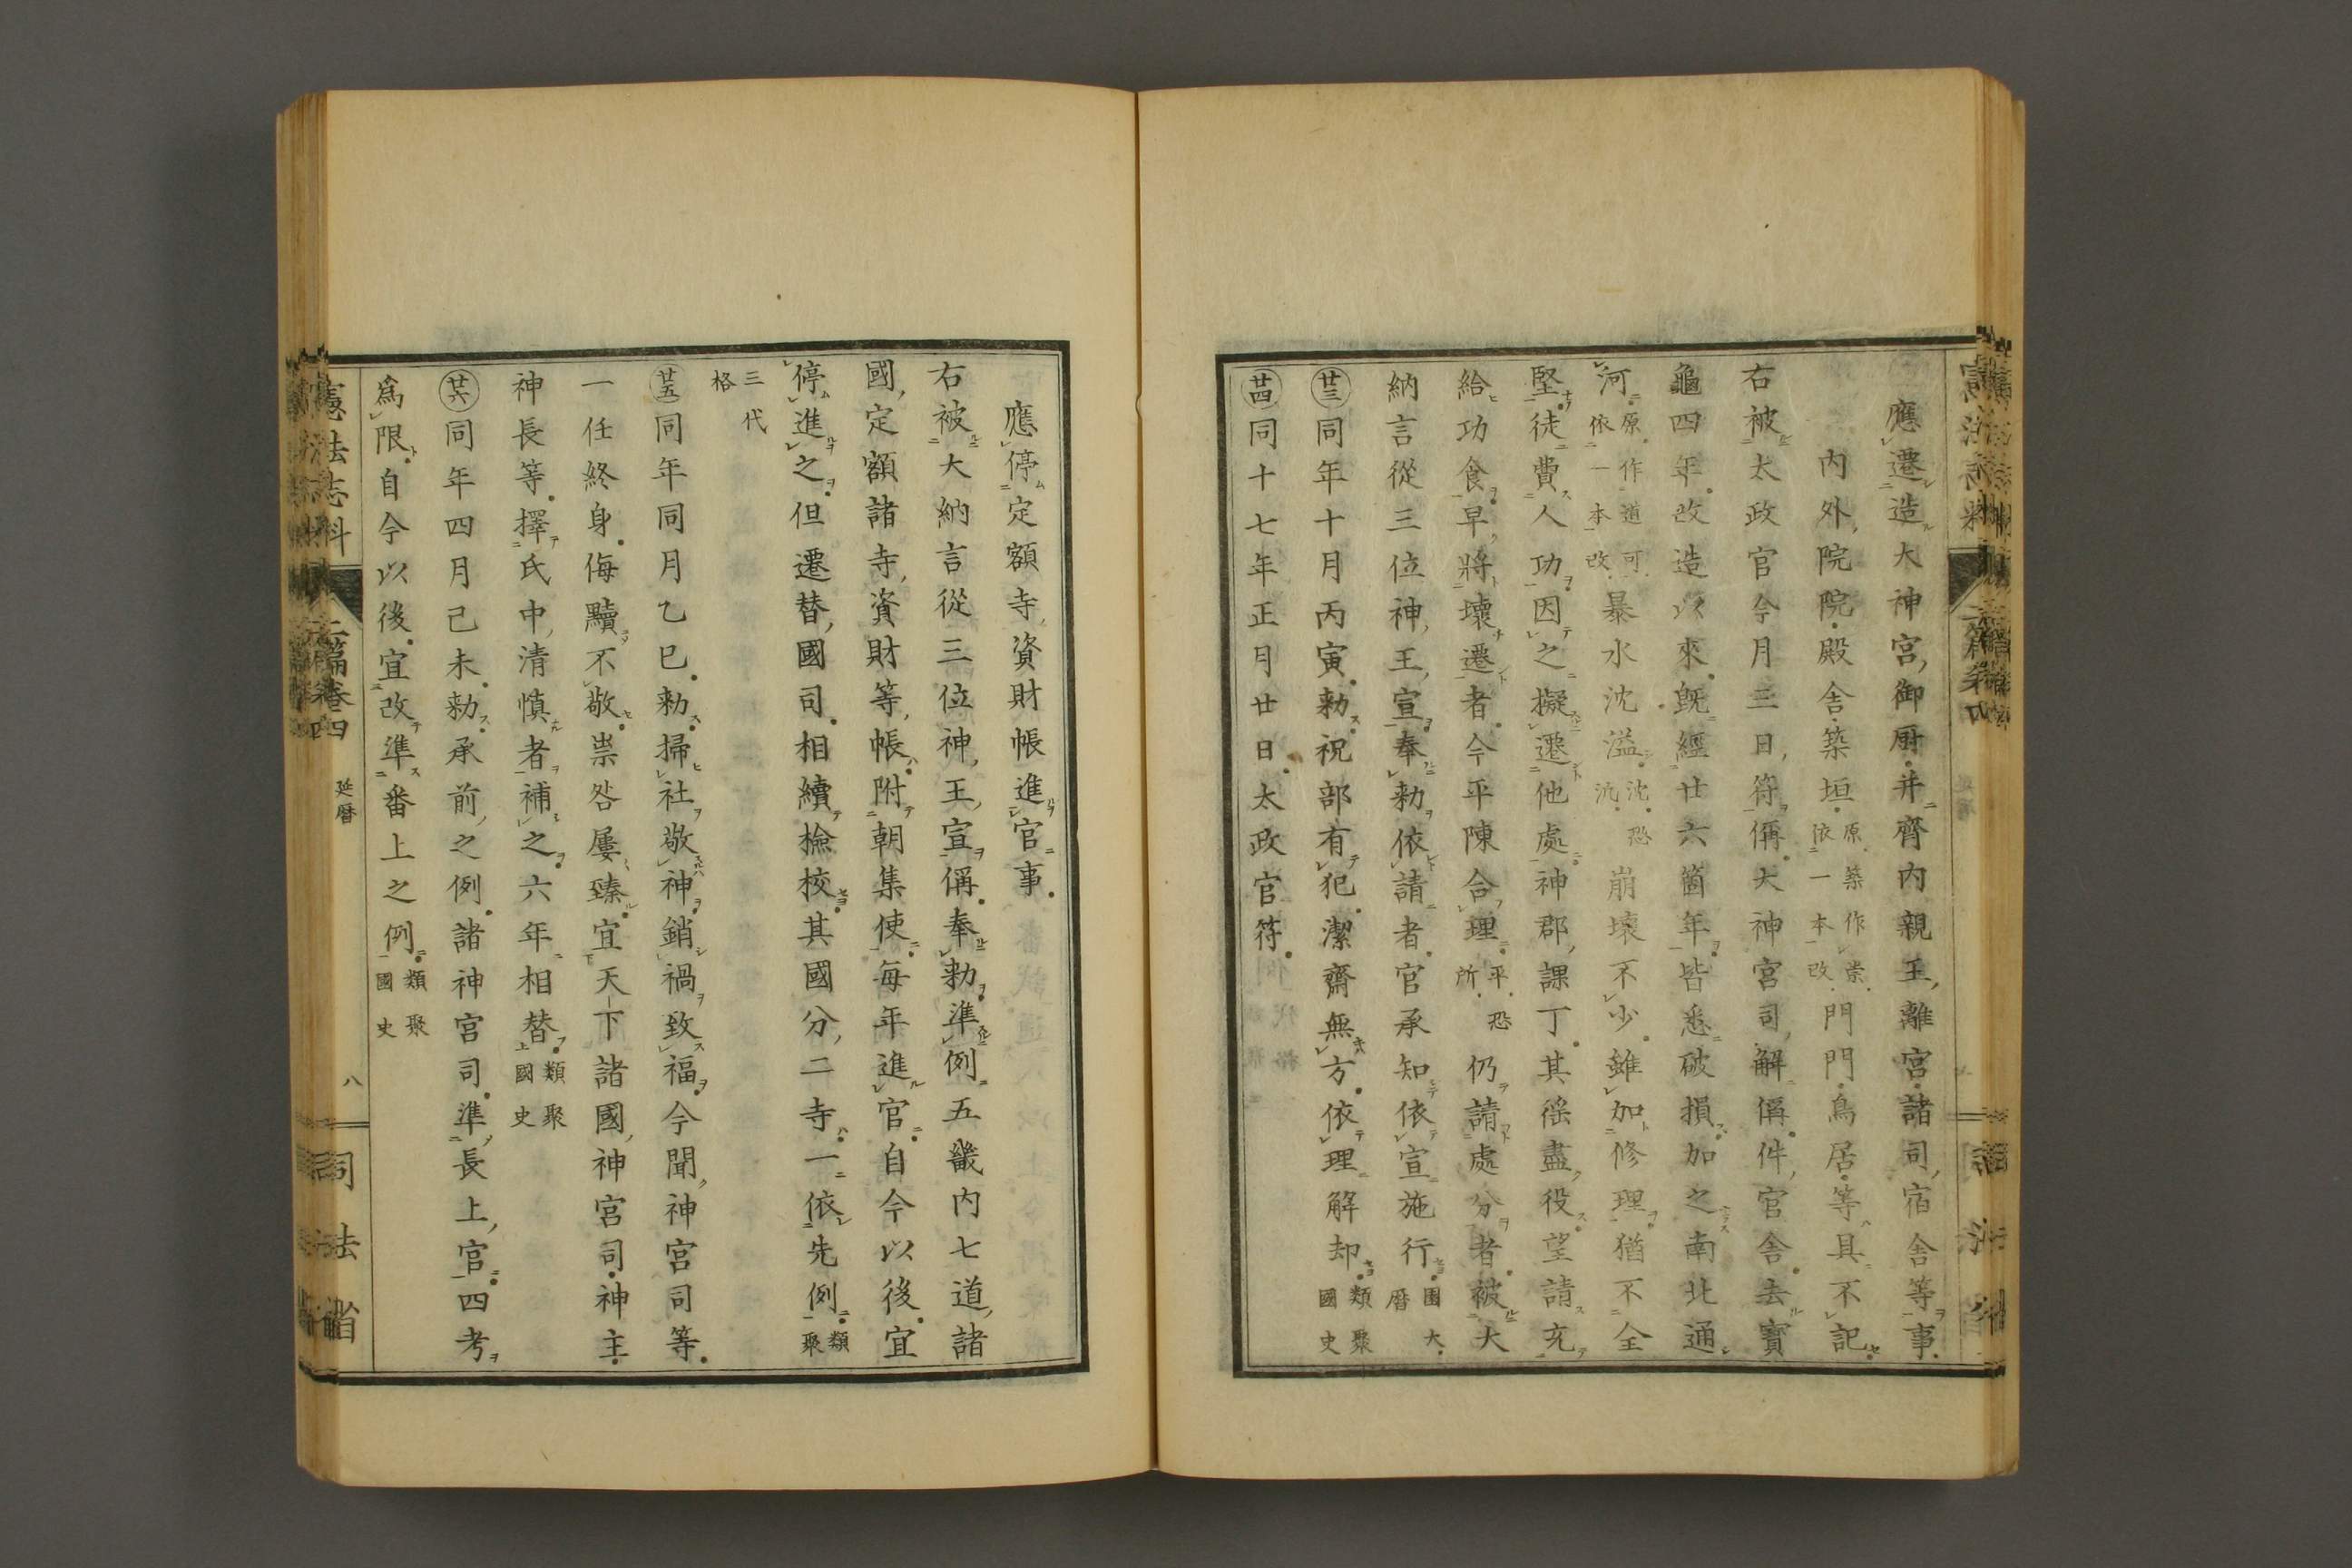 應遷造大神宮御厨并齊內親王離宮諸司宿舍等事
內外院院殿舍築垣原築作崇依一本改門門鳥居等具不記
右被太政官今月三日符偁大神宮司解偁件官舍去寶
龜四年改造以來既經廿六箇年皆悉破損加之南北通
河原作道可依一本改暴水沈溢沈恐氿崩壞不少雖加修理猶不全
堅徒費人功因之擬遷他處神郡課丁其徭盡役望請充
給功食早將壞遷者今平陳合理平恐所仍請處分者被大
納言從三位神王宣奉勅依請者官承知依宣施行園大曆
廿三同年十月丙寅勅祝部有犯潔齋無方依理解却類聚國史
廿四同十七年正月廿日太政官符
應停定額寺資財帳進官事
右被大納言從三位神王宣偁奉勅準例五畿內七道諸
國定額諸寺資財等帳附朝集使每年進官自今以後宜
停進之但遷替國司相續檢校其國分二寺一依先例類聚
三代格
廿五同年同月乙巳勅掃社敬神銷禍致福今聞神宮司等
一任終身侮黷不敬祟咎屢臻宜天下諸國神宮司神主
神長等擇氏中清慎者補之六年相替類聚國史
廿六同年四月己未勅承前之例諸神宮司準長上官四考
爲限自今以後宜改準番上之例類聚國史
憲法志料
二篇卷四
延曆
八
司法省